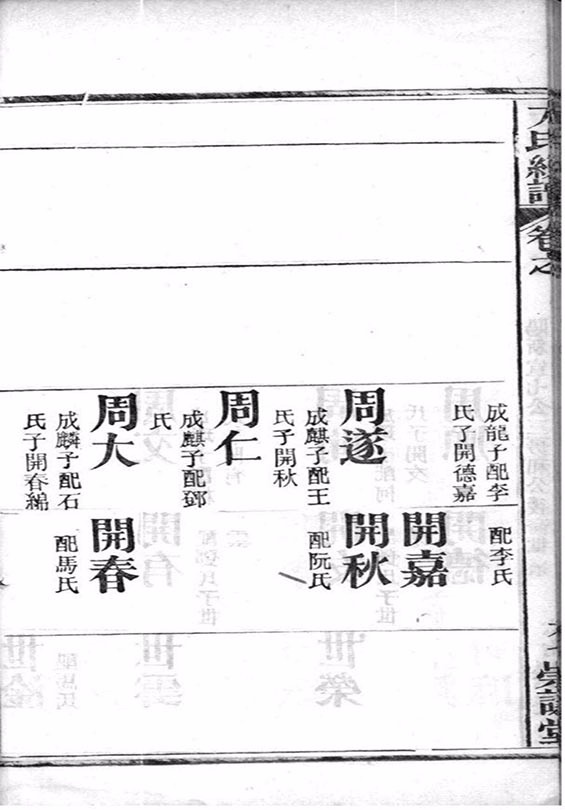 卷之
成龍子配李
氏子開德嘉
周遂
成麒子配王
氏子開秋
周仁
成麒子配鄧
氏
周大
成麟子配石
氏子開春綿
配李氏
開嘉
開秋
配阮氏
開春
配馬氏